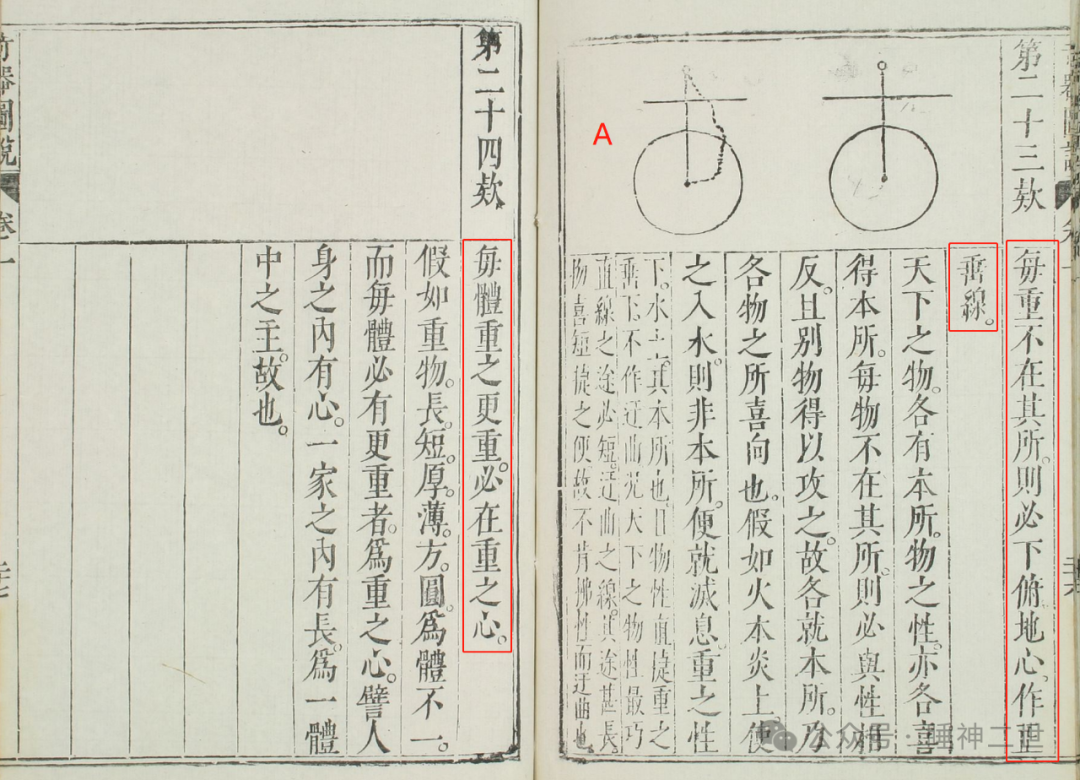 第二十三欵
A
每重不在其所。則必下俯地心。作重
垂線。
天下之物。各有本所。物之性。亦各喜
得本所。每物不在其所。則必與性相
反。且别物得以攻之。故各就本所。乃
各物之所喜向也。假如火本炎上使
之入水。則非本所。便就滅息。重之性
下。水土其本所也且物性直捷重之
垂下。不作迂曲况天下之物性最巧
直線之途必短。迂曲之線。其途甚長
物喜短捷之便。故不肯拂性而迂曲也
第二十四欵
每體重之更重。必在重之心。
假如重物。長。短。厚。薄。方。圓。爲體不一。
而每體必有更重者。爲重之心。譬人
身之內有心。一家之內有長。爲一體
中之主。故也。
奇器圖說 卷一
公众号 · 睡神二世